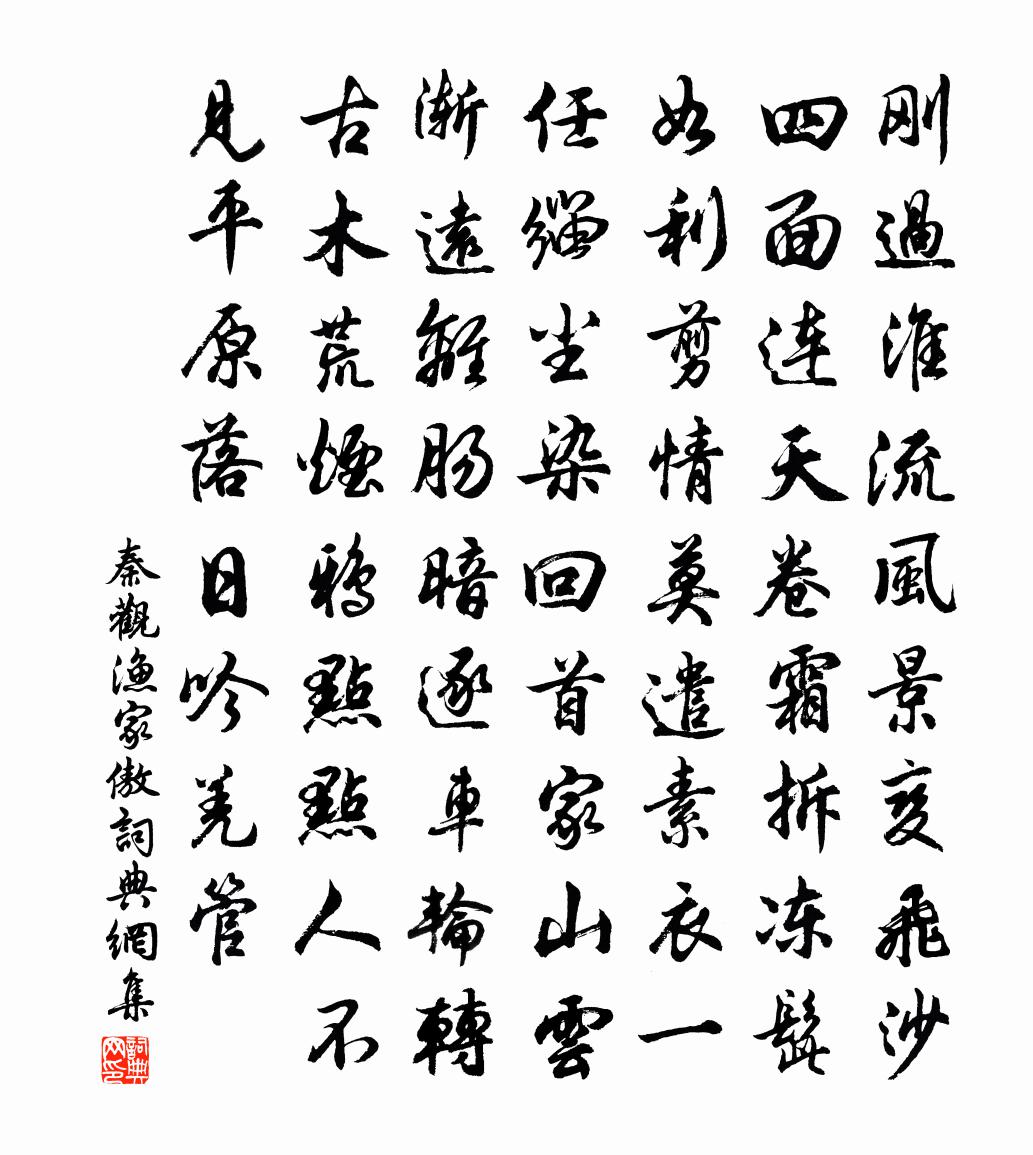 刚過淮流風景变飛沙
四面連天卷霜拆冻髭
如利剪情莫遣素衣一
任缁尘染回首家山雲
渐遠離肠暗逐車輪轉
古木荒煙鴉點點人不
見平原落日吟羌管
秦觀漁家傲詞典網集